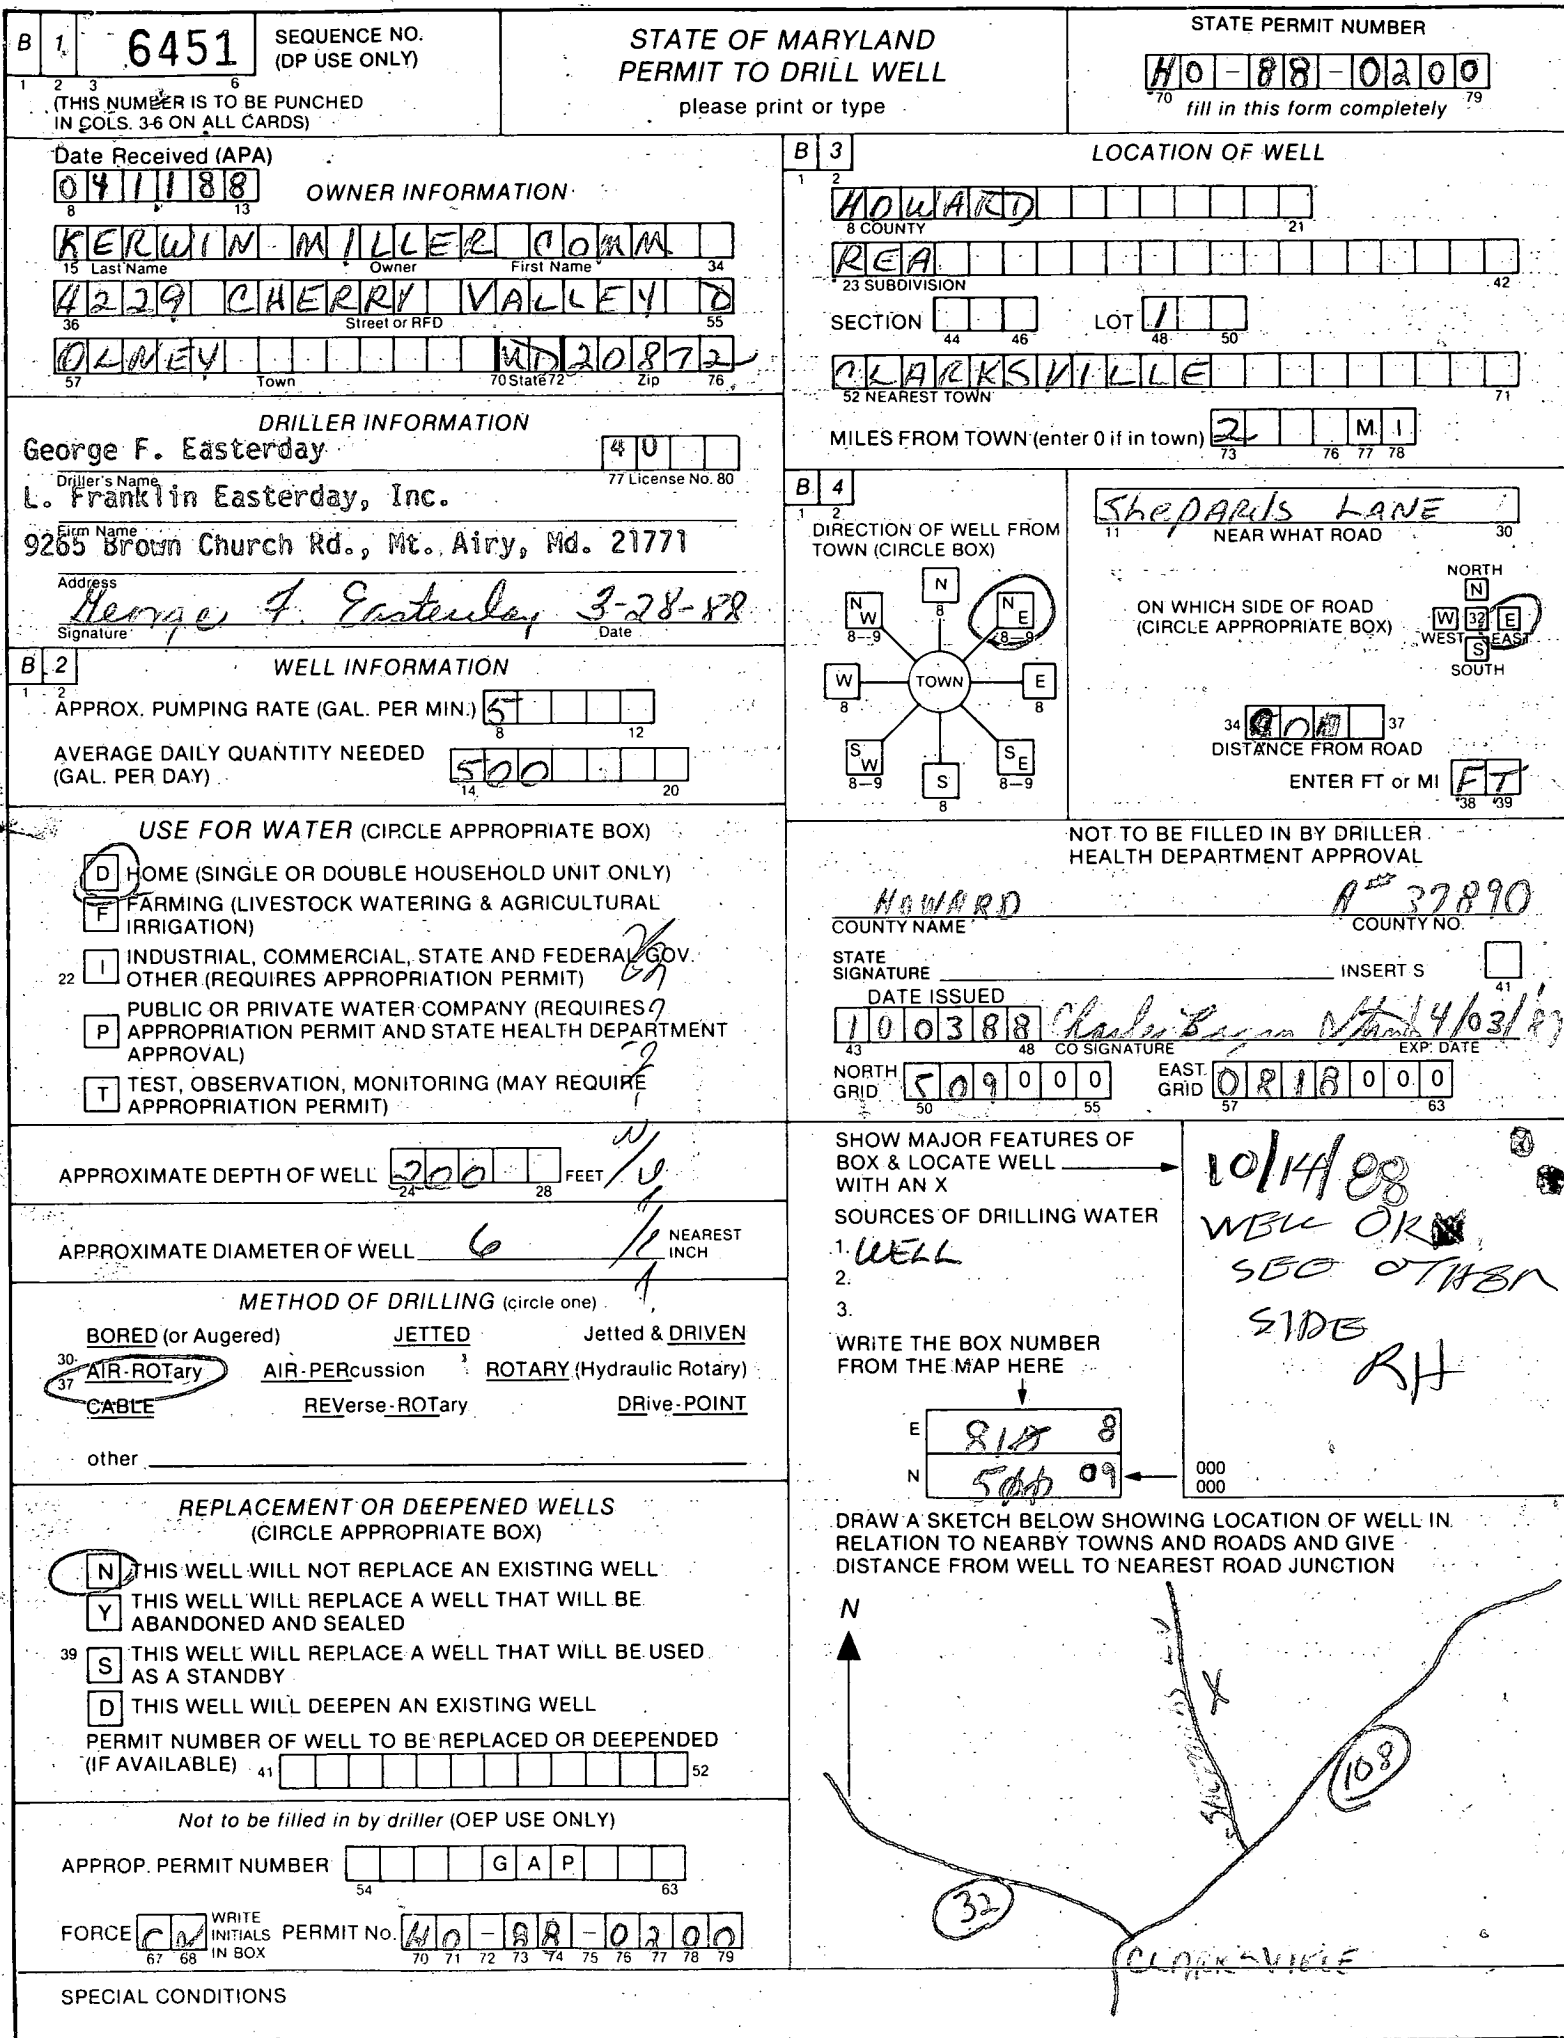 B 1 6451 SEQUENCE NO. (DP USE ONLY)
1 2 3 6
(THIS NUMBER IS TO BE PUNCHED
IN COLS. 3-6 ON ALL CARDS)
STATE OF MARYLAND
PERMIT TO DRILL WELL
please print or type
STATE PERMIT NUMBER
HO-88-0200
70 79
fill in this form completely
Date Received (APA)
041188
8 13
OWNER INFORMATION
KERWIN MILLER COMM
15 Last Name Owner First Name 34
4229 CHERRY VALLEY D
36 Street or RFD 55
OLNEY MD 20872
57 Town 70 State 72 Zip 76
DRILLER INFORMATION
George F. Easterday 40
Driller's Name 77 License No. 80
L. Franklin Easterday, Inc.
Firm Name
9265 Brown Church Rd., Mt. Airy, Md. 21771
Address
George F. Easterday 3-28-88
Signature Date
B 2 WELL INFORMATION
1 2
APPROX. PUMPING RATE (GAL. PER MIN.) 5
8 12
AVERAGE DAILY QUANTITY NEEDED
(GAL. PER DAY) 500
14 20
USE FOR WATER (CIRCLE APPROPRIATE BOX)
D HOME (SINGLE OR DOUBLE HOUSEHOLD UNIT ONLY)
F FARMING (LIVESTOCK WATERING & AGRICULTURAL
IRRIGATION)
22 I INDUSTRIAL, COMMERCIAL, STATE AND FEDERAL GOV.
OTHER (REQUIRES APPROPRIATION PERMIT)
P PUBLIC OR PRIVATE WATER COMPANY (REQUIRES
APPROPRIATION PERMIT AND STATE HEALTH DEPARTMENT
APPROVAL)
T TEST, OBSERVATION, MONITORING (MAY REQUIRE
APPROPRIATION PERMIT)
APPROXIMATE DEPTH OF WELL 200 FEET
24 28
APPROXIMATE DIAMETER OF WELL 6 NEAREST INCH
METHOD OF DRILLING (circle one)
BORED (or Augered) JETTED Jetted & DRIVEN
30-37 AIR-ROTary AIR-PERcussion ROTARY (Hydraulic Rotary)
CABLE REVerse-ROTary DRive-POINT
other
REPLACEMENT OR DEEPENED WELLS
(CIRCLE APPROPRIATE BOX)
N THIS WELL WILL NOT REPLACE AN EXISTING WELL
Y THIS WELL WILL REPLACE A WELL THAT WILL BE
ABANDONED AND SEALED
39 S THIS WELL WILL REPLACE A WELL THAT WILL BE USED
AS A STANDBY
D THIS WELL WILL DEEPEN AN EXISTING WELL
PERMIT NUMBER OF WELL TO BE REPLACED OR DEEPENDED
(IF AVAILABLE) 41 52
Not to be filled in by driller (OEP USE ONLY)
APPROP. PERMIT NUMBER G A P
54 63
FORCE CN WRITE INITIALS IN BOX PERMIT No. HO-88-0200
67 68 70 71 72 73 74 75 76 77 78 79
SPECIAL CONDITIONS
B 3 LOCATION OF WELL
1 2
HOWARD
8 COUNTY 21
REA
23 SUBDIVISION 42
SECTION LOT 1
44 46 48 50
CLARKSVILLE
52 NEAREST TOWN 71
MILES FROM TOWN (enter 0 if in town) 2 M I
73 76 77 78
B 4
1 2
DIRECTION OF WELL FROM
TOWN (CIRCLE BOX)
N 8
NW 8-9 NE 8-9
W 8 TOWN E 8
SW 8-9 SE 8-9
S 8
Shepards LANE
11 NEAR WHAT ROAD 30
ON WHICH SIDE OF ROAD
(CIRCLE APPROPRIATE BOX)
NORTH
N
W 32 E
WEST EAST
S
SOUTH
34 37
DISTANCE FROM ROAD
ENTER FT or MI FT
38 39
NOT TO BE FILLED IN BY DRILLER
HEALTH DEPARTMENT APPROVAL
HOWARD A# 37890
COUNTY NAME COUNTY NO.
STATE
SIGNATURE INSERT S
41
DATE ISSUED
100388 4/03/89
43 48 CO SIGNATURE EXP. DATE
NORTH GRID 509000 EAST GRID 0818000
50 55 57 63
SHOW MAJOR FEATURES OF
BOX & LOCATE WELL
WITH AN X
SOURCES OF DRILLING WATER
1. WELL
2.
3.
WRITE THE BOX NUMBER
FROM THE MAP HERE
E 818 8
N 09
000
000
10/14/88
WELL OK
SEE OTHER
SIDE
RH
DRAW A SKETCH BELOW SHOWING LOCATION OF WELL IN
RELATION TO NEARBY TOWNS AND ROADS AND GIVE
DISTANCE FROM WELL TO NEAREST ROAD JUNCTION
N
X
108
32
CLARKSVILLE